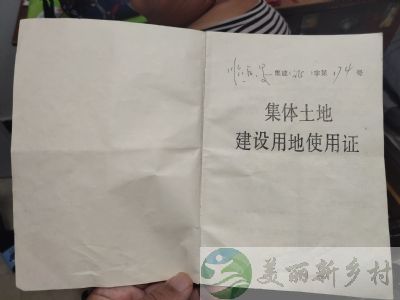 集建 字第174号
集体土地
建设用地使用证
美丽新乡村